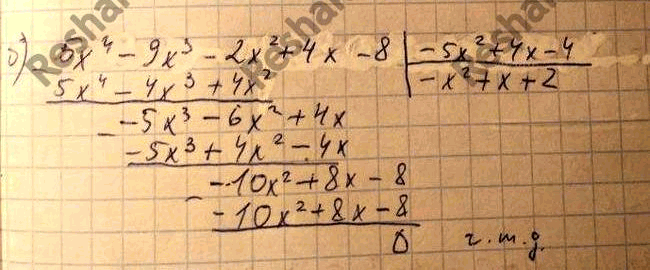 б) 5x⁴ - 9x³ - 2x² + 4x - 8 | -5x² + 4x - 4
5x⁴ - 4x³ + 4x² | -x² + x + 2
- -5x³ - 6x² + 4x
-5x³ + 4x² - 4x
- -10x² + 8x - 8
-10x² + 8x - 8
0 ч.т.д.